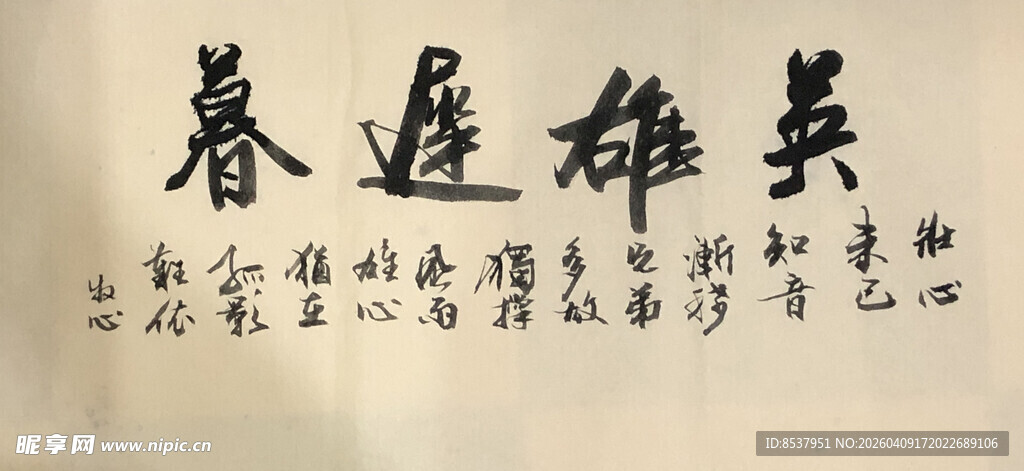 英雄遲暮
壯心
未已
知音
漸稀
兄弟
多故
獨撑
風雨
雄心
猶在
孤影
難依
牧心
昵享网 www.nipic.cn
ID:8537951 NO:20260409172022689106